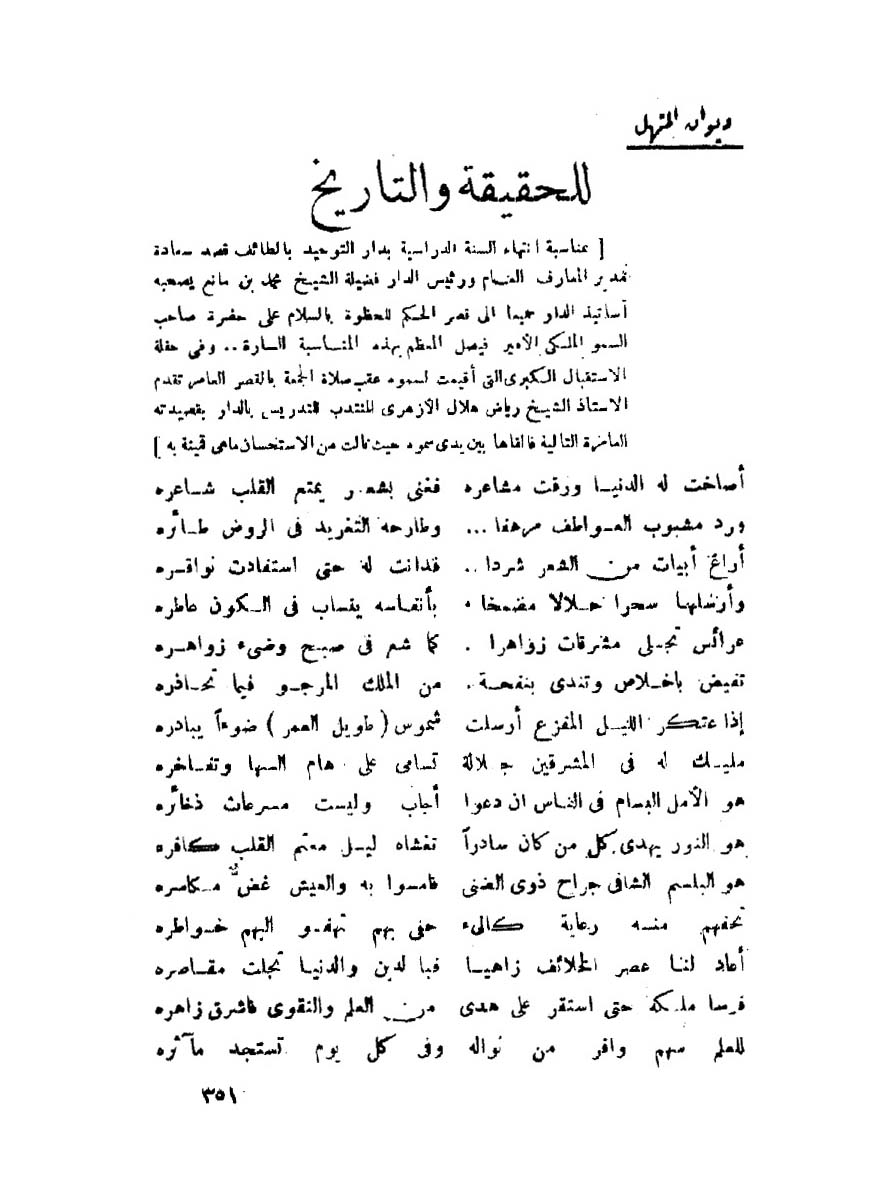 ديوان المنهل
للحقيقة والتاريخ
[ بمناسبة انتهاء السنة الدراسية بدار التوحيد بالطائف قصد سعادة
مدير المعارف العام ورئيس الدار فضيلة الشيخ محمد بن مانع يصحبه
أساتيذ الدار جميعا الى قصر الحكم للحظوة بالسلام على حضرة صاحب
السمو الملكى الأمير فيصل المعظم بهذه المناسبة السارة .. وفى حفلة
الاستقبال الكبرى التى أقيمت لسموه عقب صلاة الجمعة بالقصر العامر تقدم
الاستاذ الشيخ رياض هلال الأزهرى المنتدب للتدريس بالدار بقصيدته
العامرة التالية فالقاها بين يدى سموه حيث نالت من الاستحسان ماهى قمينة به ]
أصاخت له الدنيا ورقت مشاعره فغنى بشعر يمتع القلب شاعره
ورد مشبوب العواطف مرهفا ... وطارحه التغريد فى الروض طائره
أراغ أبيات من الشعر شردا .. فدانت له حتى استقادت نوافره
وأرسلها سحرا حلالا مضمخا . بأنفاسه ينساب فى الكون عاطره
عرائس تجلى مشرقات زواهرا . كما شع فى صبح وضىء زواهره
تفيض باخلاص وتندى بنفحة . من الملك المرجو فيما تحاذره
إذا عتكر الليل المفزع أرسلت شموس ( طويل العمر ) ضوءاً يبادره
مليك له فى المشرقين جلالة تسامى على هام السها وتفاخره
هو الأمل البسام فى الناس ان دعوا أجاب وليست مسرعات ذخائره
هو النور يهدى كل من كان سادراً تغشاه ليل معتم القلب كافره
هو البلسم الشافى جراح ذوى الضنى فامسوا به والعيش غض مكاسره
تحفهم منه رعاية كالىء حفى بهم تهفو اليهم خواطره
أعاد لنا عصر الخلائف زاهيا فبا لدين والدنيا تجلت مقاصره
فرسا ملكه حتى استقر على هدى من العلم والتقوى فاشرق زاهره
للعلم سهم وافر من نواله وفى كل يوم تستجد مآثره
٣٥١